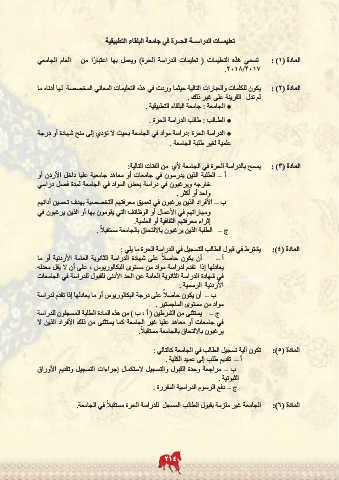 تعليمات الدراسة الحرة في جامعة البلقاء التطبيقية
المادة (١) : تسمى هذه التعليمات ( تعليمات الدراسة الحرة) ويعمل بها اعتبارًا من العام الجامعي
٢٠١٨/٢٠١٧.
المادة (٢) : يكون للكلمات والعبارات التالية حيثما وردت في هذه التعليمات المعاني المخصصة لها أدناه ما
لم تدل القرينة على غير ذلك .
● الجامعة : جامعة البلقاء التطبيقية .
● الطالب : طالب الدراسة الحرة .
● الدراسة الحرة :دراسة مواد في الجامعة بحيث لا تؤدي إلى منح شهادة أو درجة
علمية لغير طلبة الجامعة .
المادة (٣) : يسمح بالدراسة الحرة في الجامعة لأي من الفئات التالية:
أ – الطلبة الذين يدرسون في جامعات أو معاهد جامعية عليا داخل الأردن أو
خارجه ويرغبون في دراسة بعض المواد في الجامعة لمدة فصل دراسي
واحد أو أكثر .
ب – الأفراد الذين يرغبون في تعميق معرفتهم التخصصية بهدف تحسين أدائهم
ومهاراتهم في الأعمال أو الوظائف التي يقومون بها أو الذين يرغبون في
إثراء معرفتهم الثقافية أو العلمية.
ج – الطلبة الذين يرغبون بالالتحاق بالجامعة مستقبلاً .
المادة (٤): يشترط في قبول الطالب للتسجيل في الدراسة الحرة ما يلي :
أ – أن يكون حاصلاً على شهادة الدراسة الثانوية العامة الأردنية أو ما
يعادلها إذا تقدم لدراسة مواد من مستوى البكالوريوس ، على أن لا يقل معدله
في شهادة الدراسة الثانوية العامة عن الحد الأدنى للقبول للدراسة في الجامعات
الأردنية الرسمية .
ب – أن يكون حاصلاً على درجة البكالوريوس أو ما يعادلها إذا تقدم لدراسة
مواد من مستوى الماجستير .
ج – يستثنى من الشرطين ( أ ، ب ) من هذه المادة الطلبة المسجلون للدراسة
في جامعات أو معاهد عليا غير الجامعة كما يستثنى من ذلك الأفراد الذين لا
يرغبون بالالتحاق بالجامعة مستقبلاً.
المادة (٥): تكون آلية تسجيل الطالب في الجامعة كالتالي :
أ – تقديم طلب إلى عميد الكلية .
ب – مراجعة وحدة القبول والتسجيل لاستكمال إجراءات التسجيل وتقديم الأوراق
الثبوتية .
ج – دفع الرسوم الدراسية المقررة .
المادة (٦): الجامعة غير ملزمة بقبول الطالب المسجل للدراسة الحرة مستقبلاً في الجامعة.
٢١٤